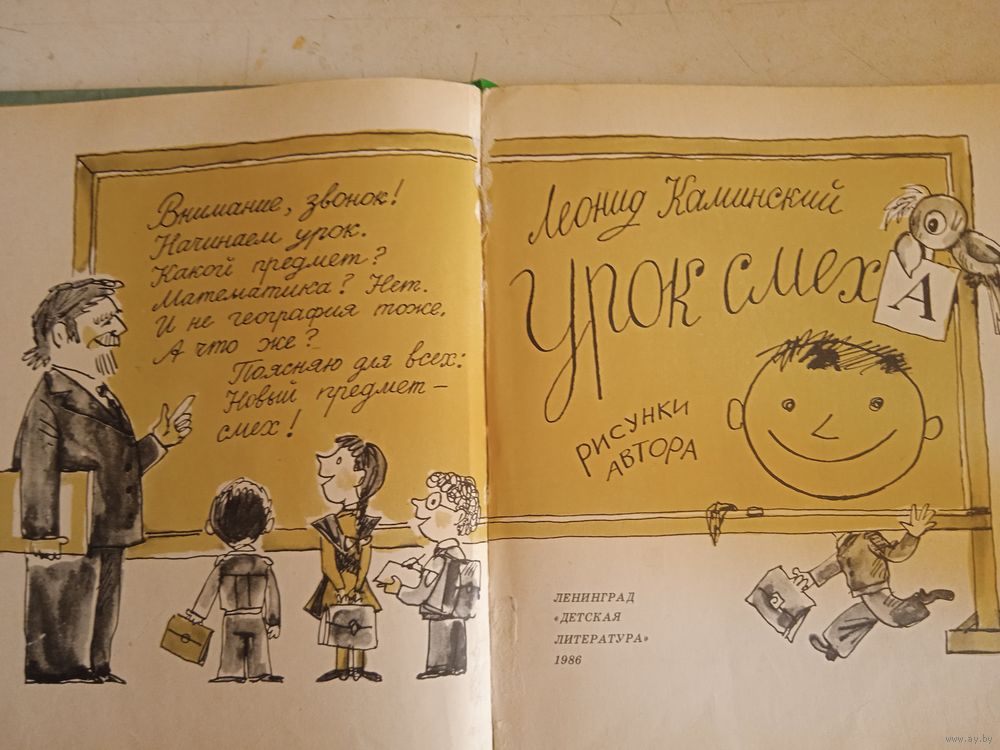 Внимание, звонок!
Начинаем урок.
Какой предмет?
Математика? Нет.
И не география тоже.
А что же?
Поясняю для всех:
Новый предмет –
смех!
Леонид Каминский
Урок смеха
А
РИСУНКИ
АВТОРА
ЛЕНИНГРАД
«ДЕТСКАЯ
ЛИТЕРАТУРА»
1986
www.ay.by